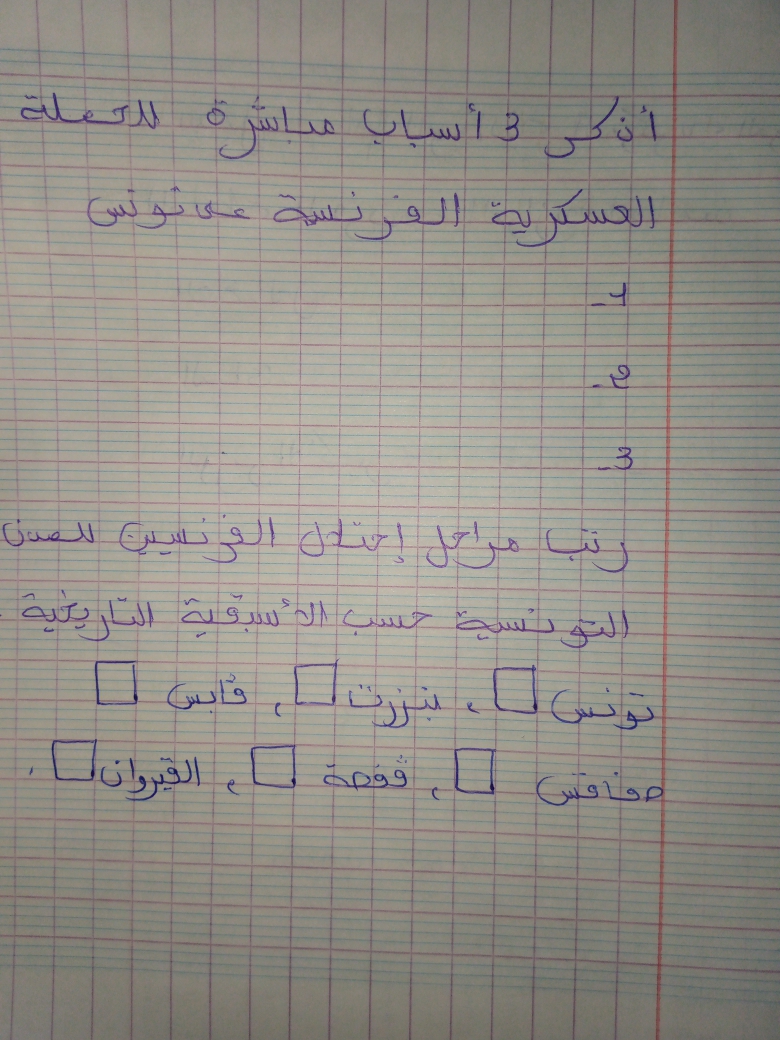 أذكر 3 أسباب مباشرة للحملة
العسكرية الفرنسة على تونس
1-
2-
3-
رتب مراحل إحتلال الفرنسيين للمدن
التونسية حسب الأسبقية التاريخية .
تونس □ ، بنزرت □ ، قابس □
صفاقس □ ، قفصة □ ، القيروان □ .